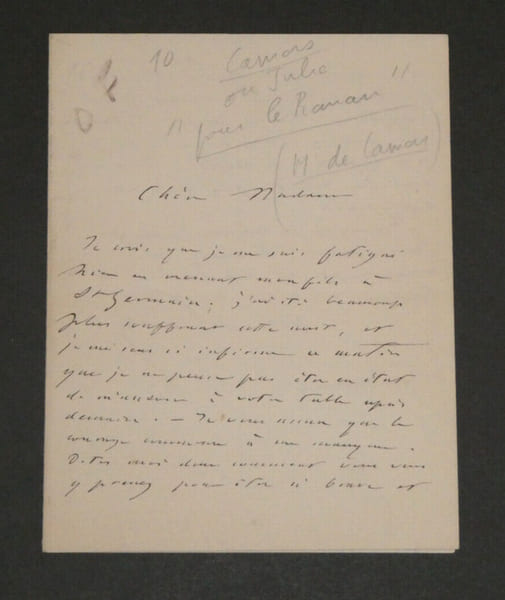 10
Camors
ou Julie
" pour le Roman "
(M de Camors)
Chère Madame
Je crois que je me suis fatigué
hier en menant mon fils à
St Germain, j'ai été beaucoup
plus souffrant cette nuit, et
je me sens si infirme ce matin
que je ne pense pas être en état
de m'asseoir à votre table après
demain. — Je vous avoue que le
courage commence à me manquer.
Dites moi donc comment vous vous
y prenez pour être si brave et